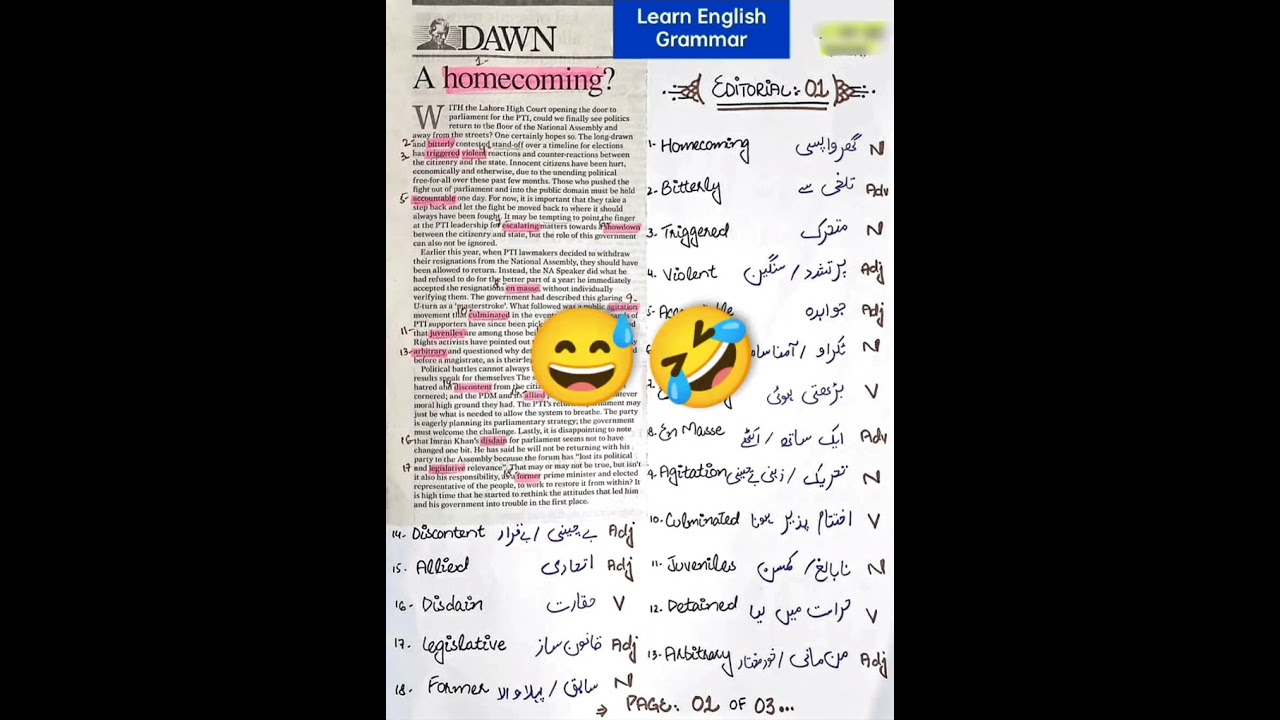 Learn English
Grammar
DAWN
1-
A homecoming?
WITH the Lahore High Court opening the door to
parliament for the PTI, could we finally see politics
return to the floor of the National Assembly and
away from the streets? One certainly hopes so. The long-drawn
2- and bitterly contested stand-off over a timeline for elections
3- has triggered violent reactions and counter-reactions between
the citizenry and the state. Innocent citizens have been hurt,
economically and otherwise, due to the unending political
free-for-all over these past few months. Those who pushed the
fight out of parliament and into the public domain must be held
5- accountable one day. For now, it is important that they take a
step back and let the fight be moved back to where it should
always have been fought. It may be tempting to point the finger
at the PTI leadership for escalating matters towards a showdown
between the citizenry and state, but the role of this government
can also not be ignored.
Earlier this year, when PTI lawmakers decided to withdraw
their resignations from the National Assembly, they should have
been allowed to return. Instead, the NA Speaker did what he
had refused to do for the better part of a year: he immediately
accepted the resignations en masse, without individually
verifying them. The government had described this glaring
U-turn as a 'masterstroke'. What followed was a public agitation
movement that culminated in the
PTI supporters have since been
11- that juveniles are among those
Rights activists have pointed out
13- arbitrary and questioned why
before a magistrate, as is their
Political battles cannot always
results speak for themselves The
hatred and discontent from the
cornered; and the PDM and its allied
moral high ground they had. The PTI's may
just be what is needed to allow the system to breathe. The party
is eagerly planning its parliamentary strategy; the government
must welcome the challenge. Lastly, it is disappointing to note
16- that Imran Khan's disdain for parliament seems not to have
changed one bit. He has said he will not be returning with his
party to the Assembly because the forum has "lost its political
17 and legislative relevance". That may or may not be true, but isn't
it also his responsibility, as a former prime minister and elected
representative of the people, to work to restore it from within? It
is high time that he started to rethink the attitudes that led him
and his government into trouble in the first place.
EDITORIAL: 01
1- Homecoming گھر واپسی N
2- Bitterly تلخی سے Adv
3- Triggered متحرک N
4- Violent پرتشدد / سنگین Adj
5- جوابدہ Adj
ٹکراو / آمنا سا N
7- بڑھتی ہوئی V
8- En Masse ایک ساتھ / اکٹھے Adv
9- Agitation تحریک / ذہنی بے چینی N
10- Culminated اختتام پذیر ہونا V
11- Juveniles نابالغ / کمسن N
12- Detained حراست میں لیا V
13- Arbitrary من مانی / خود مختار Adj
14- Discontent بے چینی / بے قرار Adj
15- Allied اتحادی Adj
16- Disdain حقارت V
17- Legislative قانون ساز Adj
18- Former سابق / پہلا والا N
⇒ PAGE: 01 OF 03...